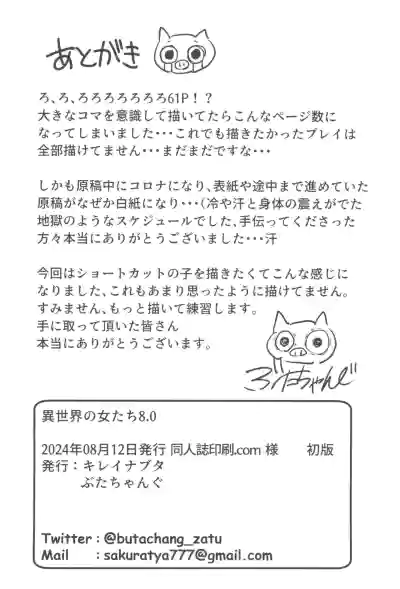 あとがき
ろ、ろ、ろろろろろろろ61P！？
大きなコマを意識して描いてたらこんなページ数に
なってしまいました・・・これでも描きたかったプレイは
全部描けてません・・・まだまだですな・・・
しかも原稿中にコロナになり、表紙や途中まで進めていた
原稿がなぜか白紙になり・・・(冷や汗と身体の震えがでた
地獄のようなスケジュールでした、手伝ってくださった
方々本当にありがとうございました・・・汗
今回はショートカットの子を描きたくてこんな感じに
なりました、これもあまり思ったように描けてません。
すみません、もっと描いて練習します。
手に取って頂いた皆さん
本当にありがとうございます。
ぶたちゃんぐ
異世界の女たち8.0
2024年08月12日発行 同人誌印刷.com 様 初版
発行：キレイナブタ
ぶたちゃんぐ
Twitter : @butachang_zatu
Mail : sakuratya777@gmail.com